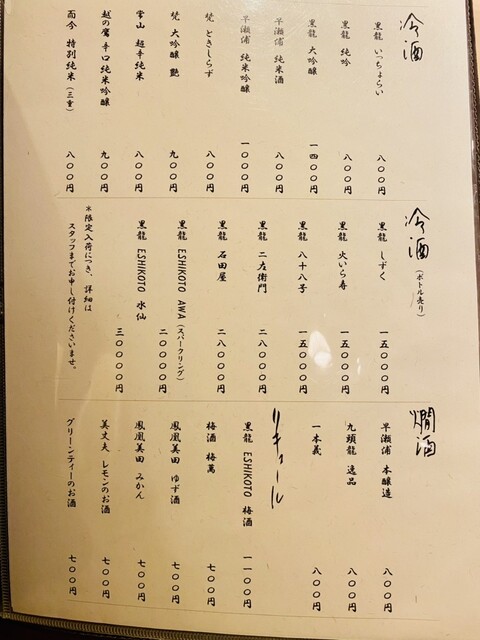 冷酒
黒龍 いっちょらい 八〇〇円
黒龍 純吟 八〇〇円
黒龍 大吟醸 一四〇〇円
早瀬浦 純米酒 八〇〇円
早瀬浦 純米吟醸 一〇〇〇円
梵 ときしらず 八〇〇円
梵 大吟醸 艶 九〇〇円
常山 超辛純米 八〇〇円
越の鷹 辛口純米吟醸 九〇〇円
而今 特別純米(三重) 八〇〇円
冷酒(ボトル売り)
黒龍 しずく 一五〇〇〇円
黒龍 火いら寿 一五〇〇〇円
黒龍 八十八号 一五〇〇〇円
黒龍 二左衛門 二八〇〇〇円
黒龍 石田屋 二八〇〇〇円
黒龍 ESHIKOTO AWA(スパークリング) 二〇〇〇〇円
黒龍 ESHIKOTO 水仙 三〇〇〇〇円
*限定入荷につき、詳細は
スタッフまでお申し付けくださいませ。
燗酒
早瀬浦 本醸造 八〇〇円
九頭龍 逸品 八〇〇円
一本義 八〇〇円
リキュール
黒龍 ESHIKOTO 梅酒 一一〇〇円
梅酒 梅萬 七〇〇円
鳳凰美田 ゆず酒 七〇〇円
鳳凰美田 みかん 七〇〇円
美丈夫 レモンのお酒 七〇〇円
グリーンティーのお酒 七〇〇円